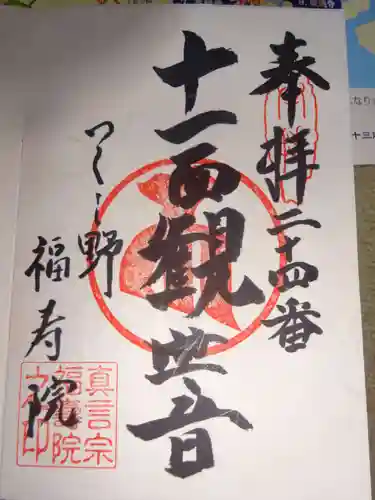 奉拝二十四番
十一面観世音
つくし野
福寿院
真言宗
福寿院
之印